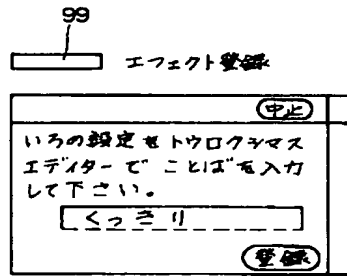 99
エフェクト登録
中止
いろの設定をトウロクシマス
エディターで ことばを入力
して下さい。
くっきり
登録